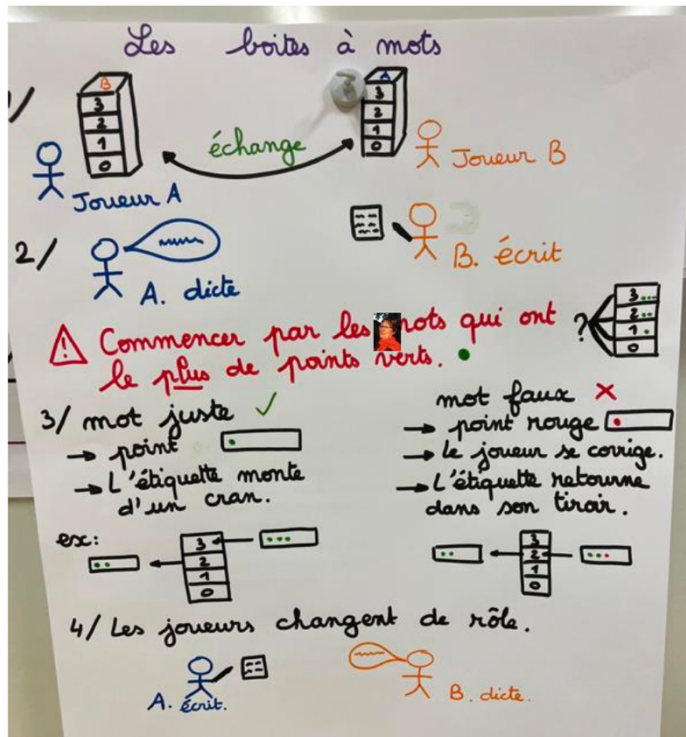 Les boites à mots
1/
B
3
2
1
0
échange
A
3
2
1
0
Joueur A
Joueur B
2/
A. dicte
B. écrit
Commencer par les mots qui ont
le plus de points verts.
?
3
2
1
0
3/ mot juste ✓
→ point
→ L'étiquette monte
d'un cran.
mot faux ×
→ point rouge
→ Le joueur se corrige.
→ L'étiquette retourne
dans son tiroir.
ex:
3
2
1
0
3
2
1
0
4/ Les joueurs changent de rôle.
A. écrit.
B. dicte.